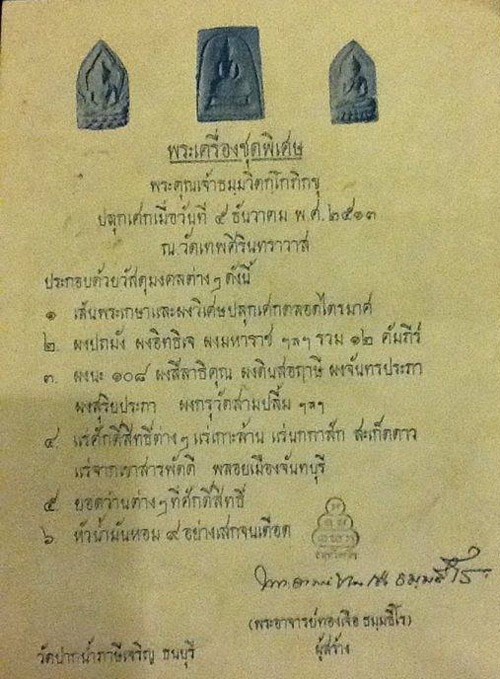 พระเครื่องชุดพิเศษ
พระคุณเจ้าธมฺมวิตกฺโกภิกขุ
ปลุกเศกเมื่อวันที่ ๕ ธันวาคม พ.ศ. ๒๕๑๓
ณ วัดเทพศิรินทราวาส
ประกอบด้วยวัสดุมงคลต่างๆ ดังนี้
๑ เส้นพระเกษาและผงวิเศษปลุกเศกตลอดไตรมาศ
๒. ผงปถมัง ผงอิทธิเจ ผงมหาราช ฯลฯ รวม ๑๒ คัมภีร์
๓. ผงนะ ๑๐๘ ผงสีลาธิคุณ ผงดินสอฤาษี ผงจันทรประภา
ผงสุริยประภา ผงกรุวัดสามปลื้ม ฯลฯ
๔ แร่ศักดิ์สิทธิ์ต่างๆ แร่เกาะล้าน แร่นกกาสัก สะเก็ดดาว
แร่จากเขาสารพัดดี พลอยเมืองจันทบุรี
๕ ยอดว่านต่างๆที่ศักดิ์สิทธิ์
๖. หัวน้ำมันหอม ๙ อย่างเสกจนเดือด
ธมฺมธีโร
(พระอาจารย์ทองเจือ ธมฺมธีโร)
วัดปากน้ำภาษีเจริญ ธนบุรี
ผู้สร้าง